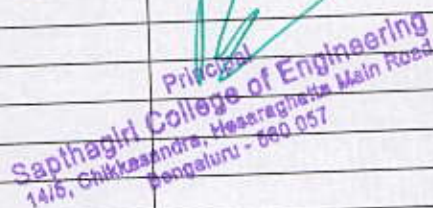 Principal
Sapthagiri College of Engineering
14/5, Chikkasandra, Hesaraghatta Main Road
Bengaluru - 560 057